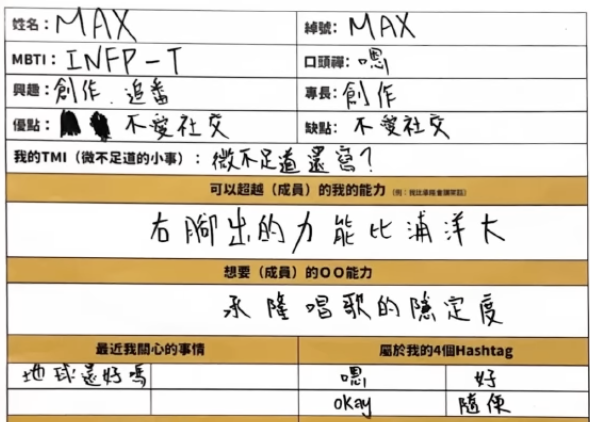 姓名：MAX 綽號：MAX
MBTI：INFP-T 口頭禪：嗯
興趣：創作、追番 專長：創作
優點：不愛社交 缺點：不愛社交
我的TMI（微不足道的小事）：微不足道還寫？
可以超越（成員）的我的能力
右腳出的力能比浦洋大
想要（成員）的OO能力
承隆唱歌的隱定度
最近我關心的事情 屬於我的4個Hashtag
地球還好嗎 嗯 好
okay 隨便